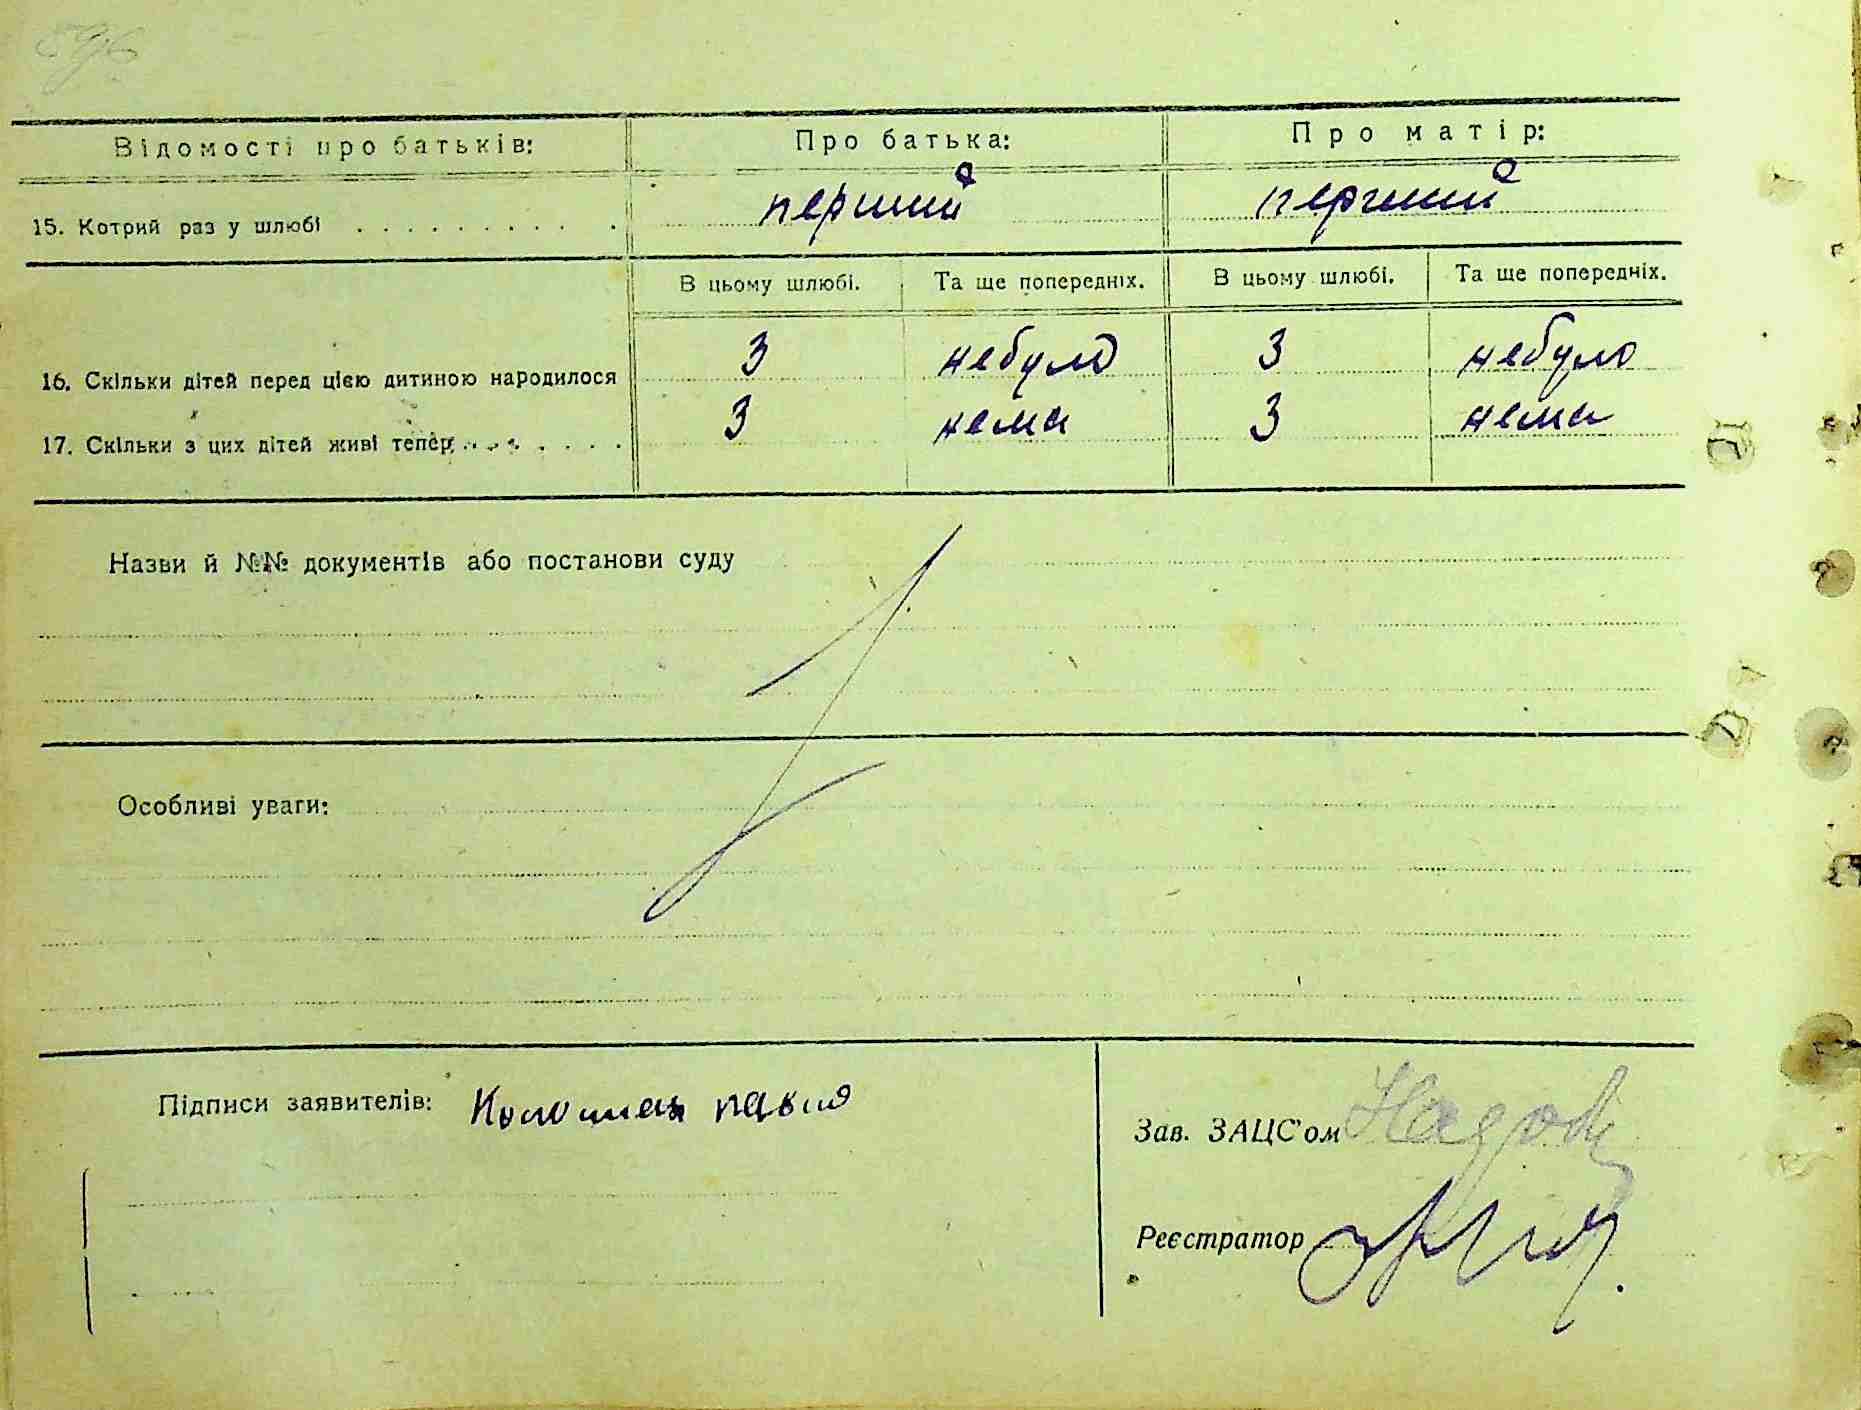 Відомості про батьків: Про батька: Про матір:
15. Котрий раз у шлюбі перший перший
В цьому шлюбі. Та ще попередніх. В цьому шлюбі. Та ще попередніх.
16. Скільки дітей перед цією дитиною народилося 3 небуло 3 небуло
17. Скільки з цих дітей живі тепер 3 нема 3 нема
Назви й №№ документів або постанови суду
Особливі уваги:
Підписи заявителів:
Зав. ЗАЦС'ом
Реєстратор